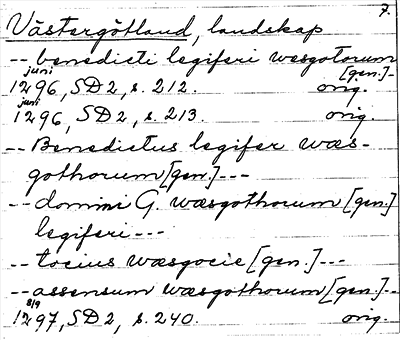 7.
Västergötland, landskap
-- benedicti legiferi wesgotorum
[gen.]-
juni
1296, SD 2, s. 212. orig.
juni
1296, SD 2, s. 213. orig.
-- Benedictus legifer wæs-
gothorum [gen.] ---
-- domini G. wæsgothorum [gen.]
legiferi ---
-- tocius wæsgocie [gen.] ---
-- assensum wæsgothorum [gen.] --
8/9
1297, SD 2, s. 240. orig.